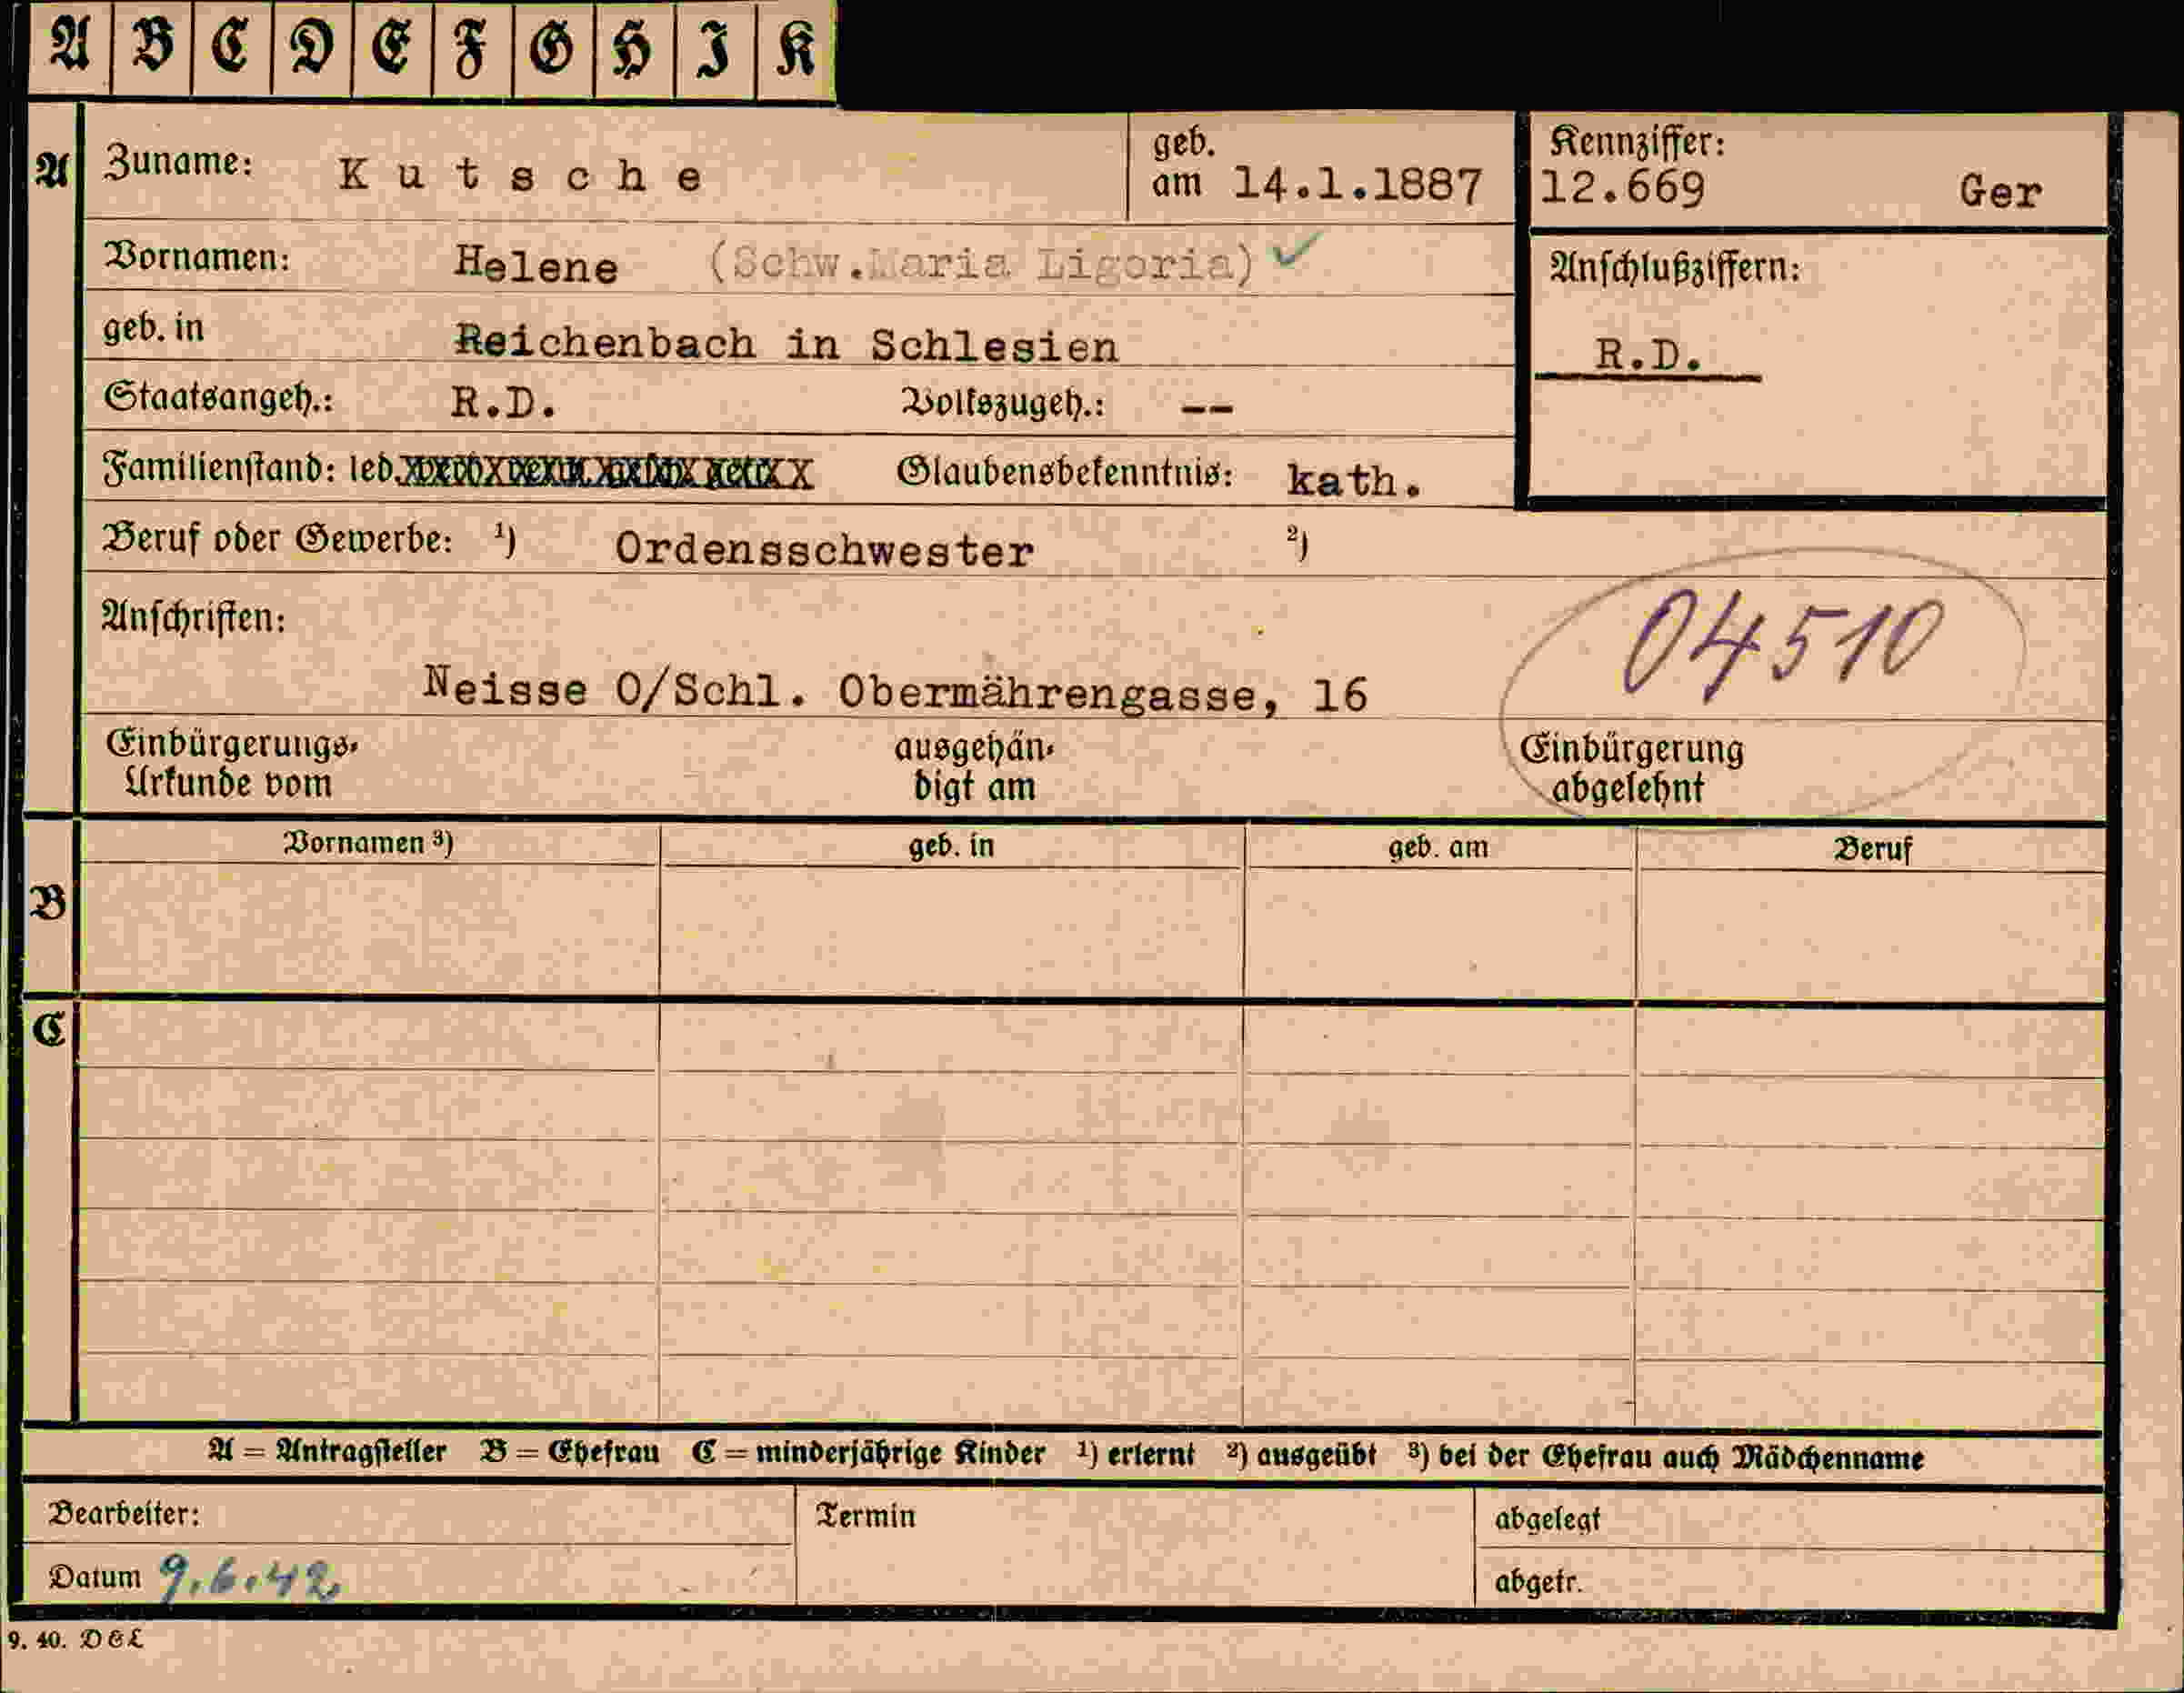 A B C D E F G H J K
A Zuname: Kutsche geb. am 14.1.1887 Kennziffer: 12.669 Ger
Vornamen: Helene (Schw.Maria Ligoria) ✓ Anschlußziffern:
geb. in Reichenbach in Schlesien R.D.
Staatsangeh.: R.D. Volkszugeh.: --
Familienstand: led. Glaubensbekenntnis: kath.
Beruf oder Gewerbe: ¹) Ordensschwester ²)
Anschriften: 04510
Neisse O/Schl. Obermährengasse, 16
Einbürgerungs- ausgehän- Einbürgerung
Urkunde vom digt am abgelehnt
Vornamen ³) geb. in geb. am Beruf
B
C
A = Antragsteller B = Ehefrau C = minderjährige Kinder ¹) erlernt ²) ausgeübt ³) bei der Ehefrau auch Mädchenname
Bearbeiter: Termin abgelegt
Datum 9.6.42. abgetr.
9. 40. D&L